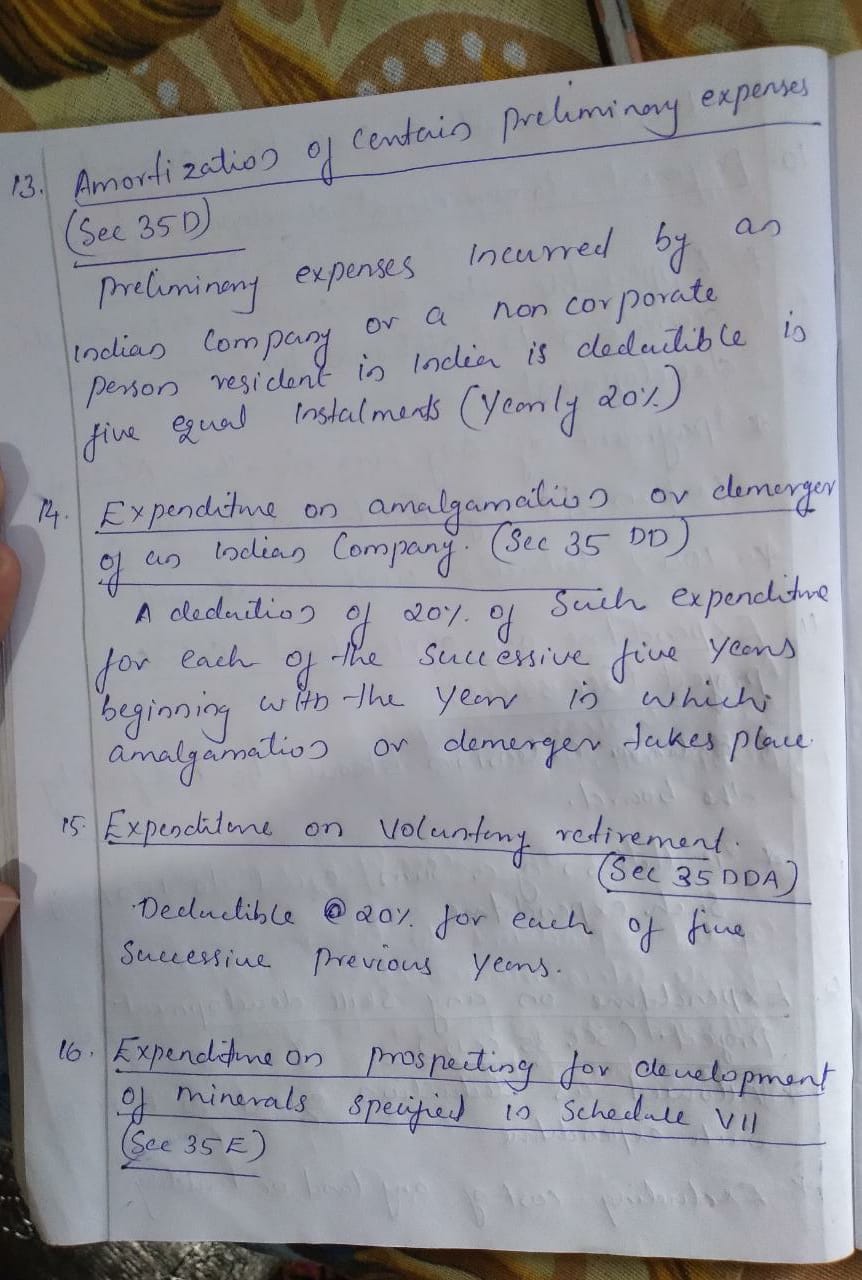 13. Amortization of Certain preliminary expenses
(Sec 35D)
Preliminary expenses incurred by an
Indian Company or a non corporate
person resident in India is deductible in
five equal instalments (Yearly 20%)
14. Expenditure on amalgamation or demerger
of an Indian Company. (Sec 35 DD)
A deduction of 20% of Such expenditure
for each of the Successive five years
beginning with the year in which
amalgamation or demerger takes place.
15. Expenditure on Voluntary retirement.
(Sec 35 DDA)
Deductible @ 20% for each of five
Successive Previous years.
16. Expenditure on prospecting for development
of minerals specified in Schedule VII
(Sec 35E)